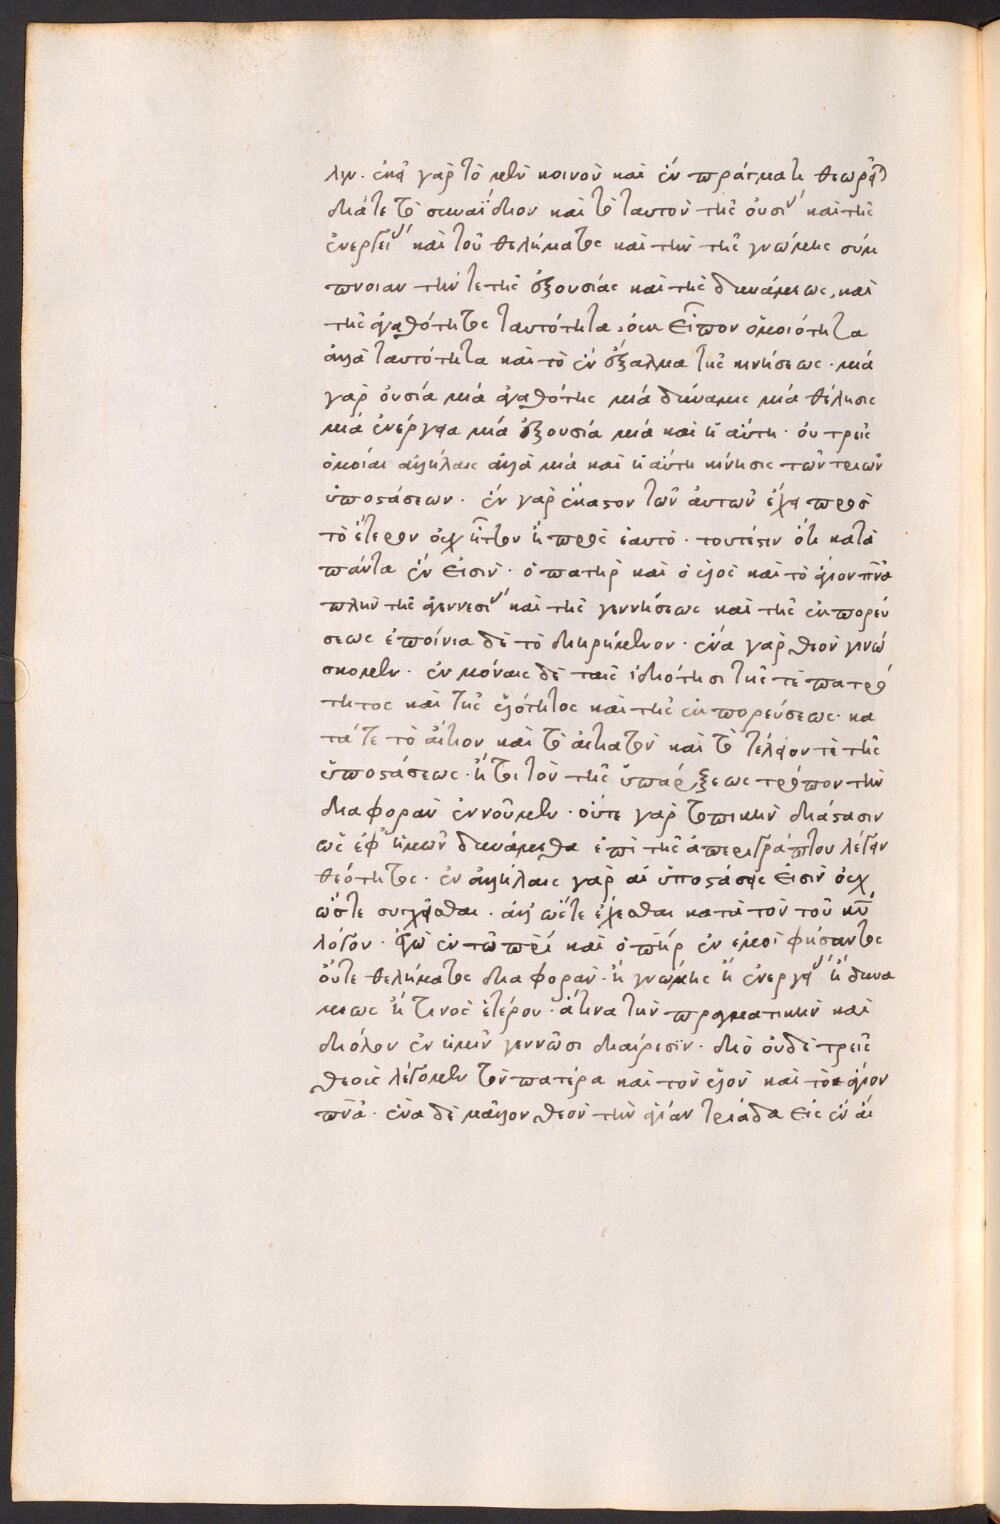 λιν. ἐκεῖ γὰρ τὸ μὲν κοινὸν καὶ ἓν πράγματι θεωρεῖται
διά τε τὸ συναΐδιον καὶ τὸ ταυτὸν τῆς οὐσίας καὶ τῆς
ἐνεργείας καὶ τοῦ θελήματος καὶ τὴν τῆς γνώμης σύμ
πνοιαν τήν τε τῆς ἐξουσίας καὶ τῆς δυνάμεως, καὶ
τῆς ἀγαθότητος ταυτότητα, οὐκ εἶπον ὁμοιότητα
ἀλλὰ ταυτότητα καὶ τὸ ἓν ἔξαλμα τῆς κινήσεως · μιὰ
γὰρ οὐσία μιὰ ἀγαθότης μιὰ δύναμις μιὰ θέλησις
μιὰ ἐνέργεια μιὰ ἐξουσία μιὰ καὶ ἡ αὐτή · οὐ τρεῖς
ὅμοιαι ἀλλήλαις ἀλλὰ μιὰ καὶ ἡ αὐτὴ κίνησις τῶν τριῶν
ὑποστάσεων · ἓν γὰρ ἕκαστον τῶν αὐτῶν ἔχει πρὸς
τὸ ἕτερον οὐχ ἧττον ἢ πρὸς ἑαυτό · τουτέστιν ὅτι κατὰ
πάντα ἕν εἰσιν · ὁ πατὴρ καὶ ὁ υἱὸς καὶ τὸ ἅγιον πνα
πλὴν τῆς ἀγεννεσίας καὶ τῆς γεννήσεως καὶ τῆς ἐκπορεύ
σεως ἐποίνια δὲ τὸ διῃρημένον · ἕνα γὰρ θεὸν γινώ
σκομεν · ἐν μόναις δὲ ταῖς ἰδιότησι τῆς τε πατρό
τητος καὶ τῆς υἱότητος καὶ τῆς ἐκπορεύσεως · κα
τά τε τὸ αἴτιον καὶ τὸ αἰτιατὸν καὶ τὸ τέλειόν τε τῆς
ὑποστάσεως · ἤτοι τὸν τῆς ὑπάρξεως τρόπον τὴν
διαφορὰν ἐννοῦμεν · οὔτε γὰρ τοπικὴν διάστασιν
ὡς ἐφ' ἡμῶν δυνάμεθα ἐπὶ τῆς ἀπεριγράπτου λέγειν
θεότητος · ἐν ἀλλήλαις γὰρ αἱ ὑποστάσεις εἰσὶν οὐχ
ὥστε συγχεῖσθαι · ἀλλ' ὥστε ἔχεσθαι κατὰ τὸν τοῦ κυ
λόγον · ἐγὼ ἐν τῷ πρι καὶ ὁ πηρ ἐν ἐμοὶ φήσαντος
οὔτε θελήματος διαφορὰν · ἢ γνώμης ἢ ἐνεργείας ἢ δυνά
μεως ἤ τινος ἑτέρου · ἅτινα τὴν πραγματικὴν καὶ
διόλου ἐν ἡμῖν γεννῶσι διαίρεσιν · διὸ οὐδὲ τρεῖς
θεοὺς λέγομεν τὸν πατέρα καὶ τὸν υἱὸν καὶ τὸ ἅγιον
πνα · ἕνα δὲ μᾶλλον θεὸν τὴν ἁγίαν τριάδα εἰς ἓν αἴ